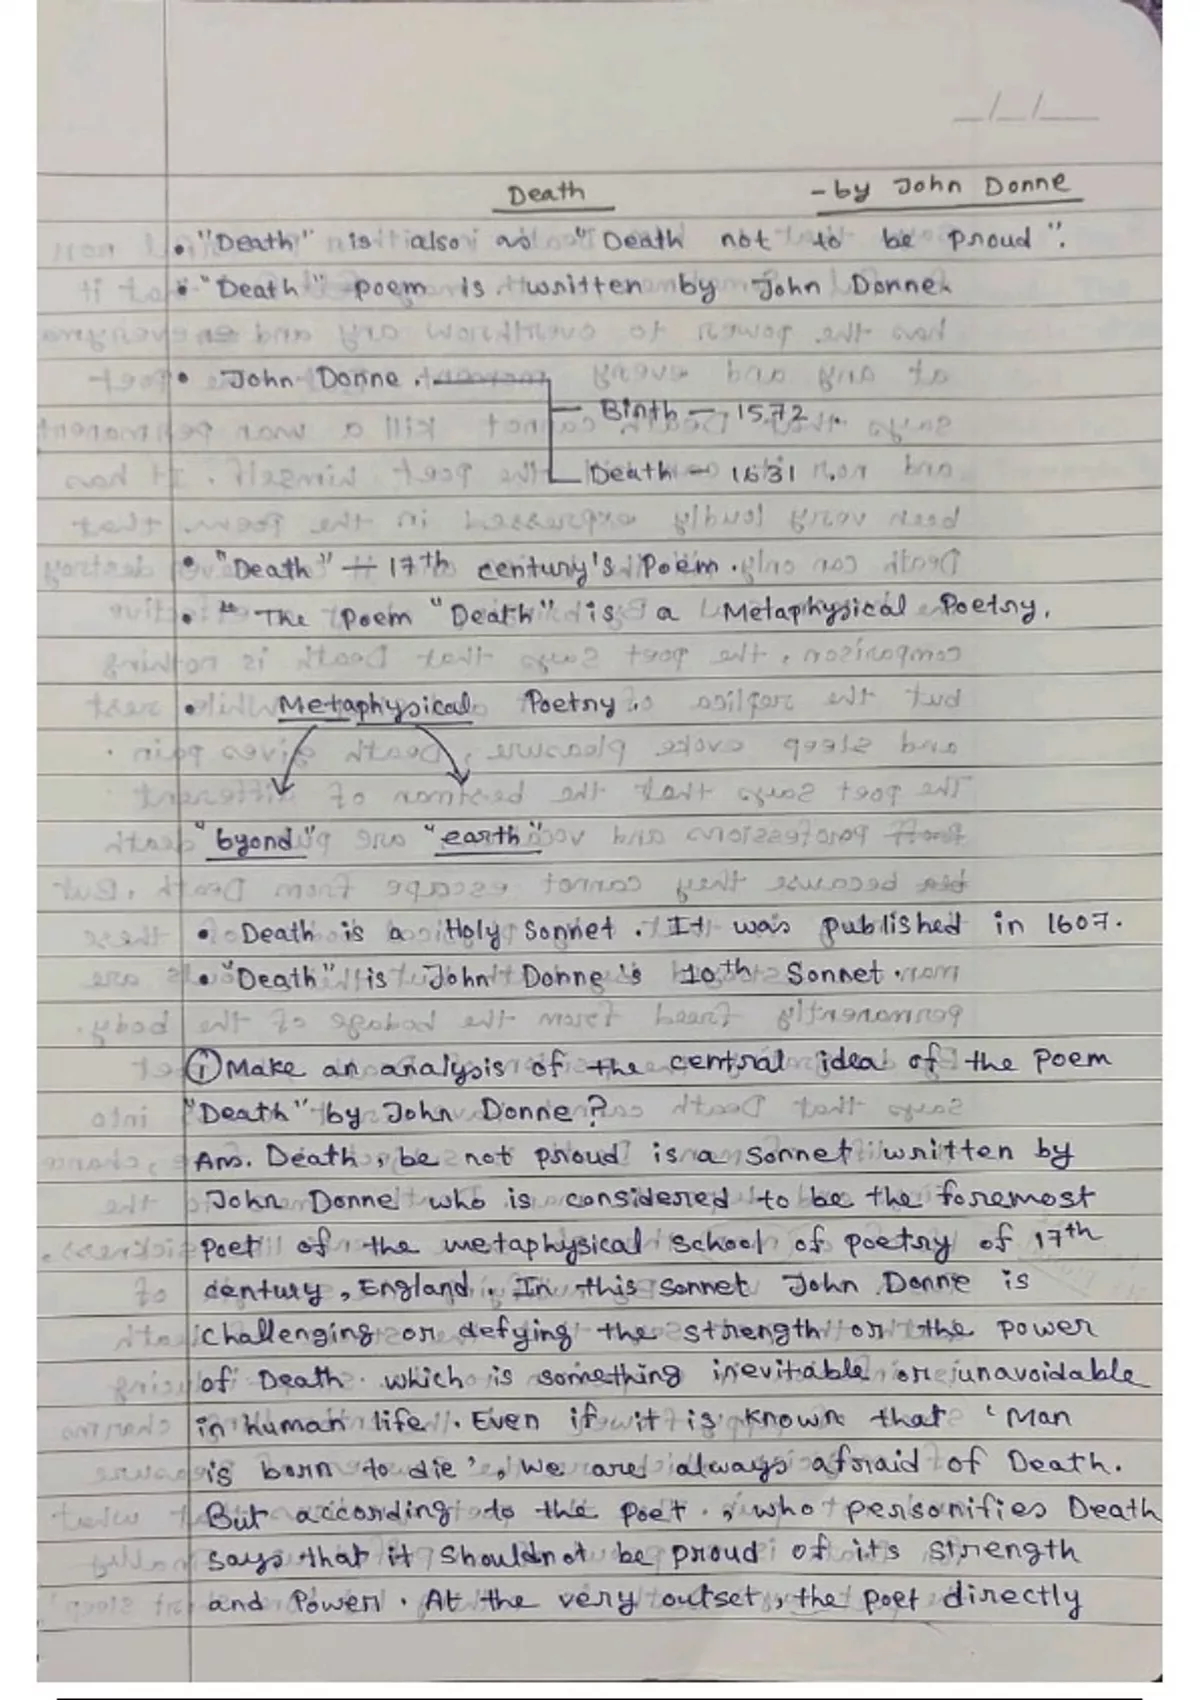 _/_/_
Death - by John Donne
• "Death" is also as "Death not to be proud".
• "Death" poem is written by John Donne.
• John Donne.
Birth - 1572.
Death - 1631.
• "Death" - 17th century's Poem.
• "The Poem "Death" is a Metaphysical Poetry.
• Metaphysical Poetry.
"byond" "earth"
• Death is a Holy Sonnet. It was published in 1607.
• "Death" is John Donne's 10th Sonnet.
① Make an analysis of the central idea of the Poem
"Death" by John Donne?
Ans. Death, be not proud is a sonnet written by
John Donne who is considered to be the foremost
poet of the metaphysical school of poetry of 17th
century, England. In this sonnet John Donne is
challenging or defying the strength or the power
of Death which is something inevitable or unavoidable
in human life. Even if it is known that 'Man
is born to die', we are always afraid of Death.
But according to the Poet, who personifies Death
says that it shouldnot be proud of its strength
and Power. At the very outset, the poet directly